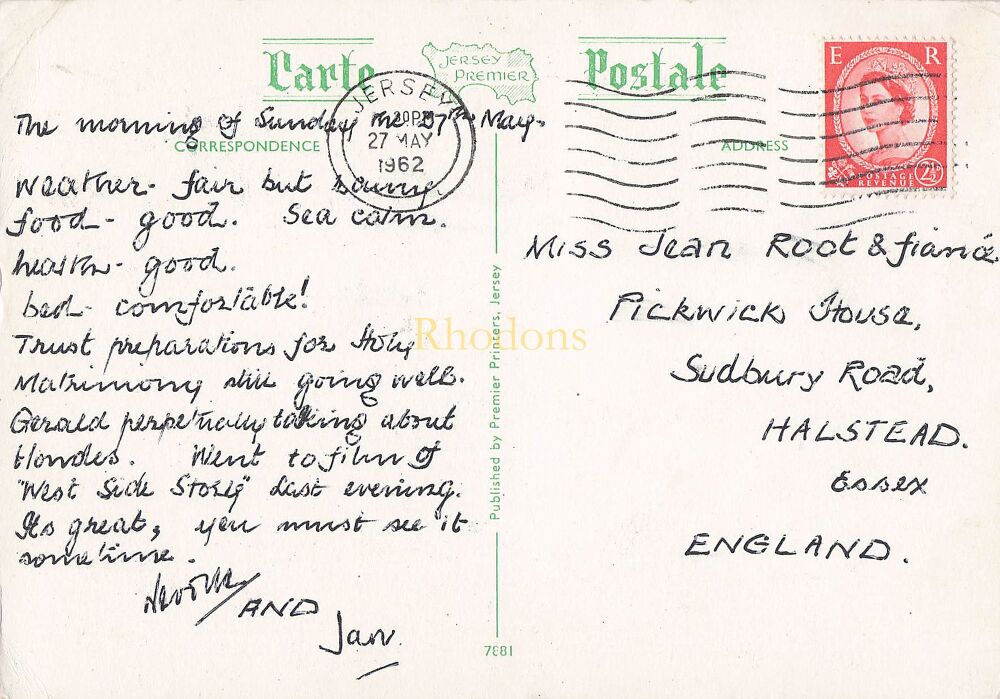 Carte Postale
JERSEY PREMIER
JERSEY
27 MAY
1962
E R
POSTAGE REVENUE
2½
CORRESPONDENCE
ADDRESS
The morning of Sunday the 27th May.
Weather - fair but
food - good. Sea calm.
health - good.
bed - comfortable!
Trust preparations for Holy
Matrimony still going well.
Gerald perpetually talking about
blondes. Went to film of
"West Side Story" last evening.
Its great, you must see it
sometime.
Neville/AND
Jan.
Miss Jean Root & fiancé
Pickwick House,
Sudbury Road,
HALSTEAD.
Essex
ENGLAND.
Published by Premier Printers, Jersey
7881
Rhodons